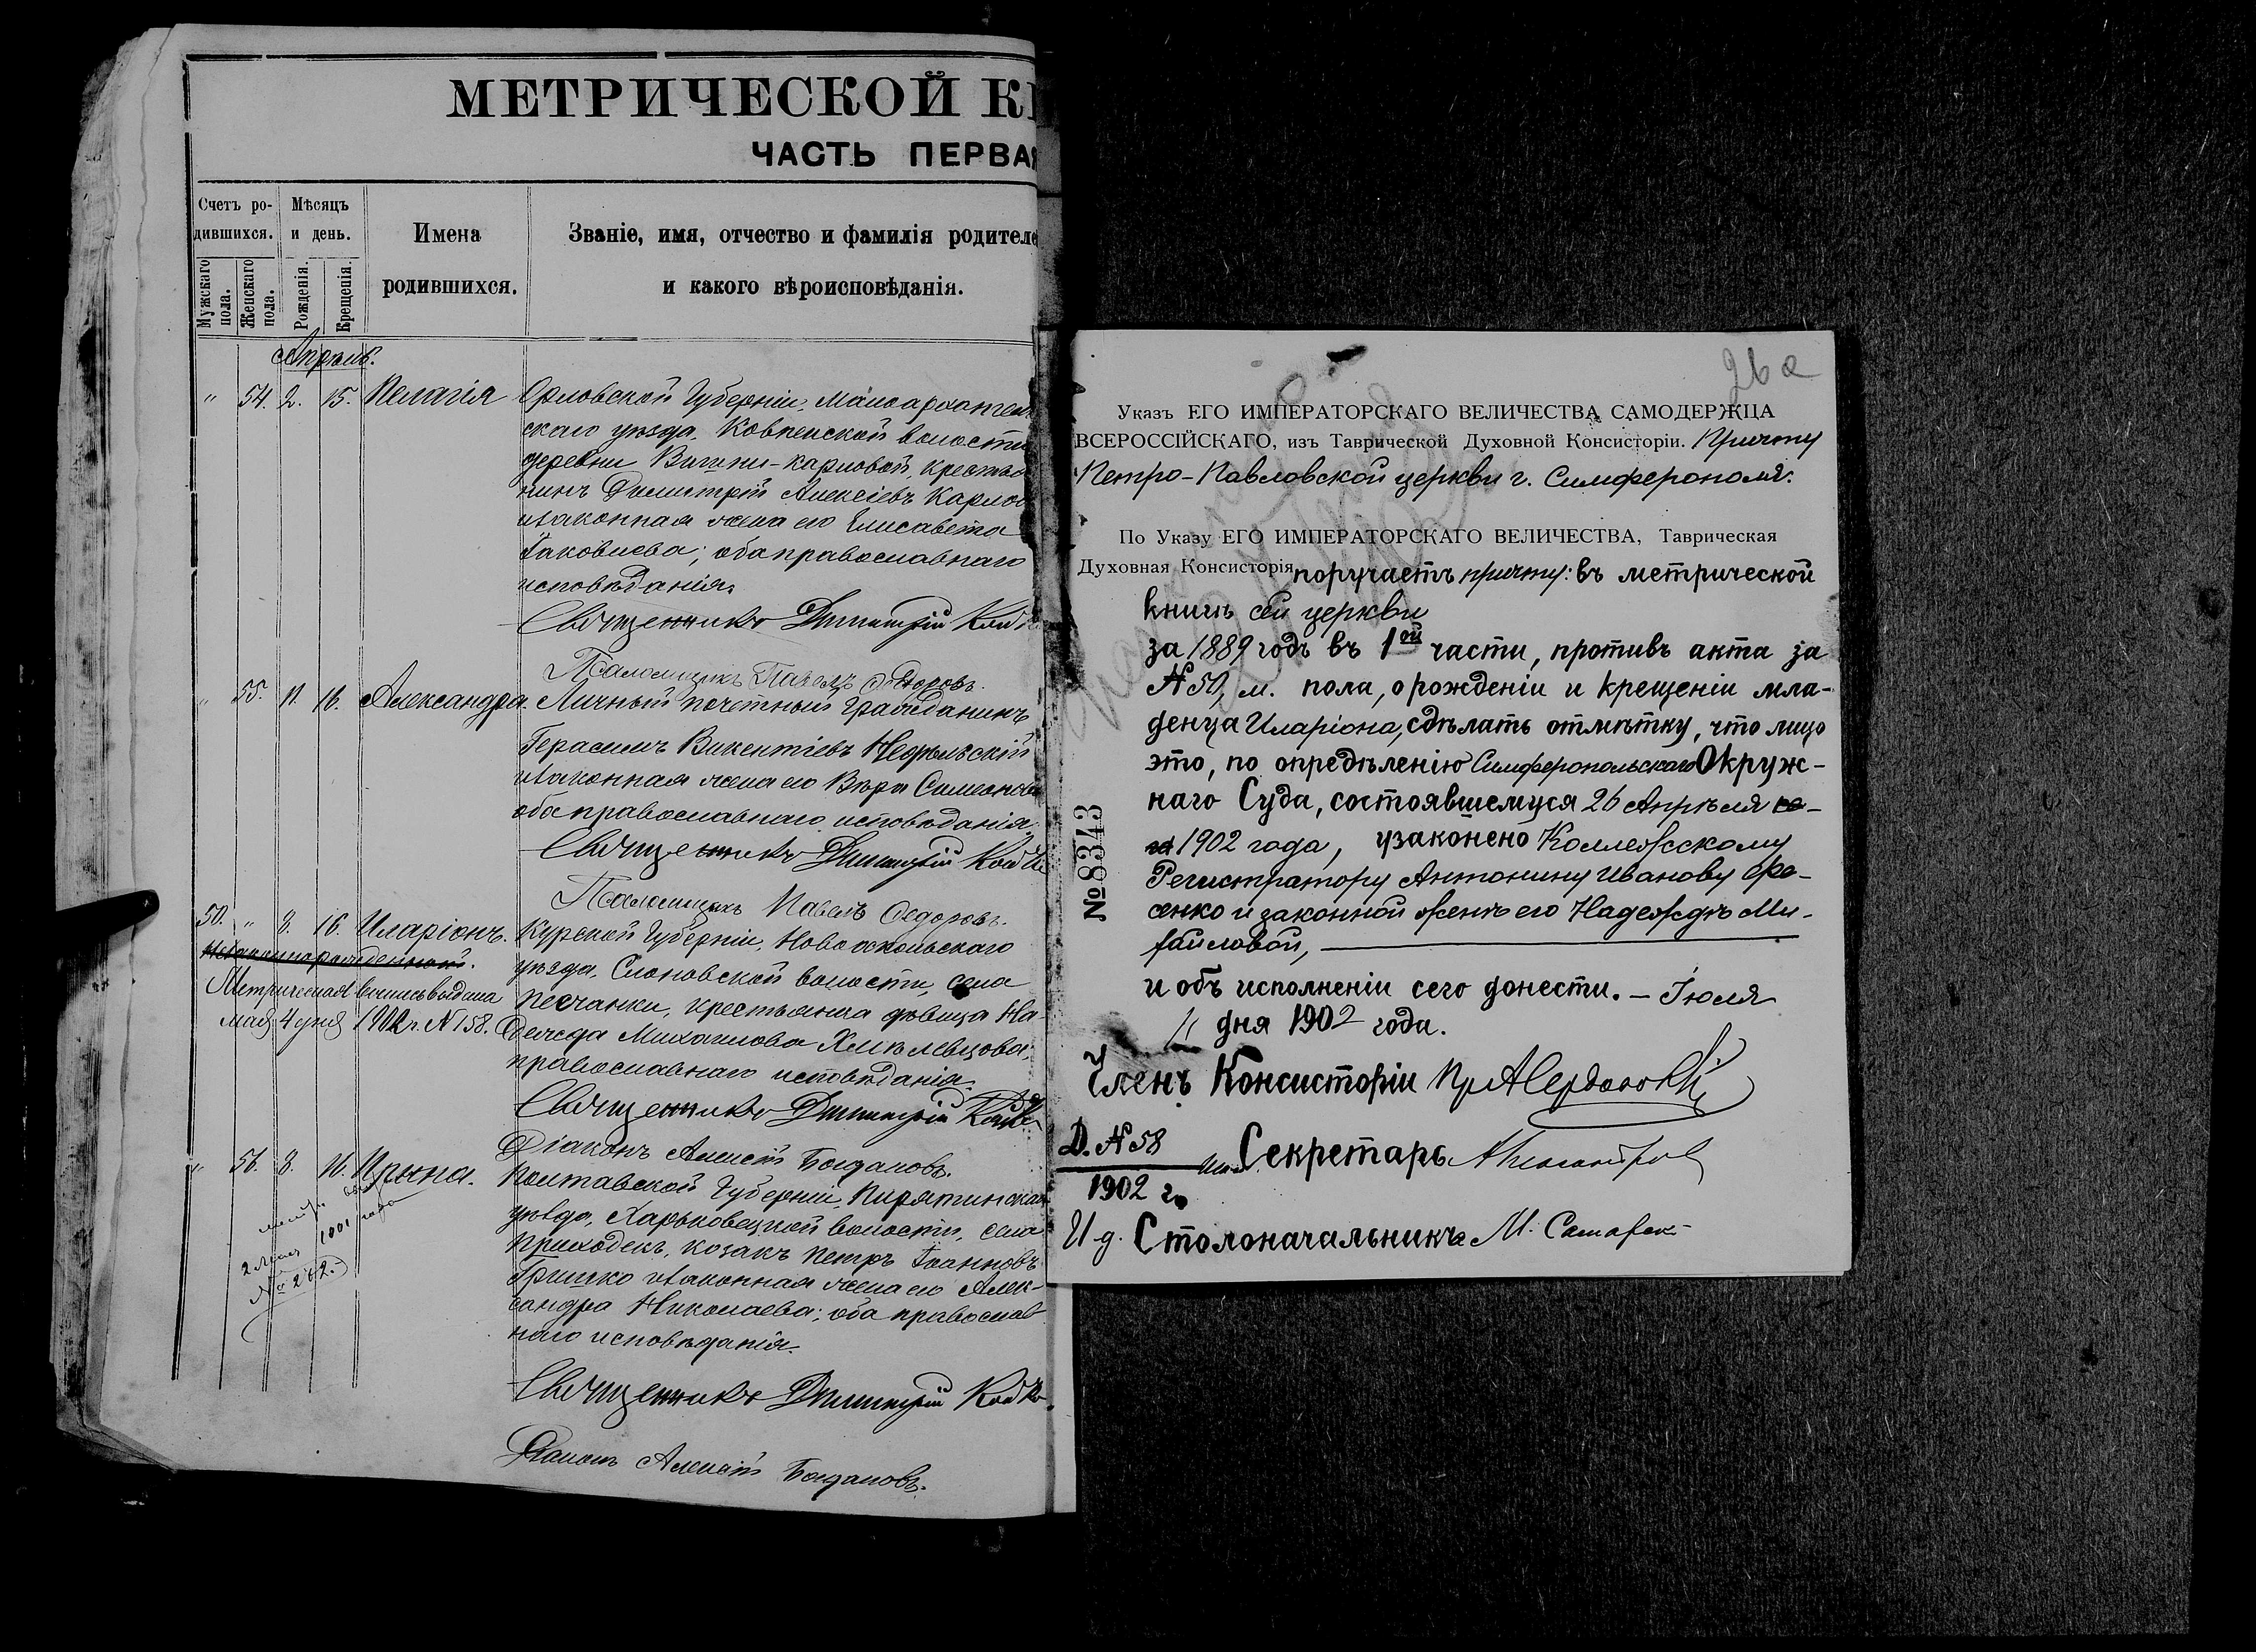 МЕТРИЧЕСКОЙ К
ЧАСТЬ ПЕРВАЯ
Счетъ ро-
дившихся.
Мужскаго пола.
Женскаго пола.
Мѣсяцъ
и день.
Рожденія.
Крещенія.
Имена
родившихся.
Званіе, имя, отчество и фамилія родителе
и какого вѣроисповѣданія.
Апрѣль.
" 54. 2. 15. Пелагія Орловской Губерніи, Малоархангель
скаго уѣзда, волости
деревни карловой, крестья
нинъ Димитрій Алексіевъ Карлов
и законная жена его Елисавета
Іаковлева; оба православнаго
исповѣданія.
Священникъ Димитрій
Псаломщикъ Павелъ Ѳедоровъ.
" 55. 11. 16. Александра. Личный почетный Гражданинъ
Герасимъ Викентіевъ
и законная жена его Вѣра Симеонова
оба православнаго исповѣданія.
Священникъ Димитрій
Псаломщикъ Павелъ Ѳедоровъ.
50. " 8. 16. Иларіонъ. Курской Губерніи, Новооскольскаго
незаконнорожденный.
уѣзда, Слоновской волости, села
Метрическая выпись выдана
Песчанки, крестьянка дѣвица На-
мая 4 дня 1902 г. N 158.
дежда Михаилова Хмѣлевцова,
православнаго исповѣданія.
Священникъ Димитрій
Діаконъ Алексій Богдановъ.
" 56. 8. 16. Ирина. Полтавской Губерніи, Пирятинскаго
уѣзда, Харьковецкой волости, села
1901 года
№ 262.
Приходекъ, козакъ Петръ Іоанновъ
Гришко и законная жена его Алек-
сандра Николаева; оба православ
наго исповѣданія.
Священникъ Димитрій
Діаконъ Алексій Богдановъ.
26 а
Указъ ЕГО ИМПЕРАТОРСКАГО ВЕЛИЧЕСТВА САМОДЕРЖЦА
ВСЕРОССІЙСКАГО, изъ Таврической Духовной Консисторіи. Причту
Петро-Павловской церкви г. Симферополя.
По Указу ЕГО ИМПЕРАТОРСКАГО ВЕЛИЧЕСТВА, Таврическая
Духовная Консисторія поручаетъ причту: въ метрической
книгѣ сей церкви
за 1889 годъ въ 1ой части, противъ акта за
N 50, м. пола, о рожденіи и крещеніи мла-
денца Иларіона, сдѣлать отмѣтку, что лицо
это, по опредѣленію Симферопольскаго Окруж-
наго Суда, состоявшемуся 26 Апрѣля
1902 года, узаконено Коллежскому
Регистратору Антонину Иванову Фе-
сенко и законной женѣ его Надеждѣ Ми-
хайловой,
и объ исполненіи сего донести. – Іюля
11 дня 1902 года.
№ 8343
Членъ Консисторіи
Д. N 58
1902 г.
Секретарь
И. д. Столоначальника М.